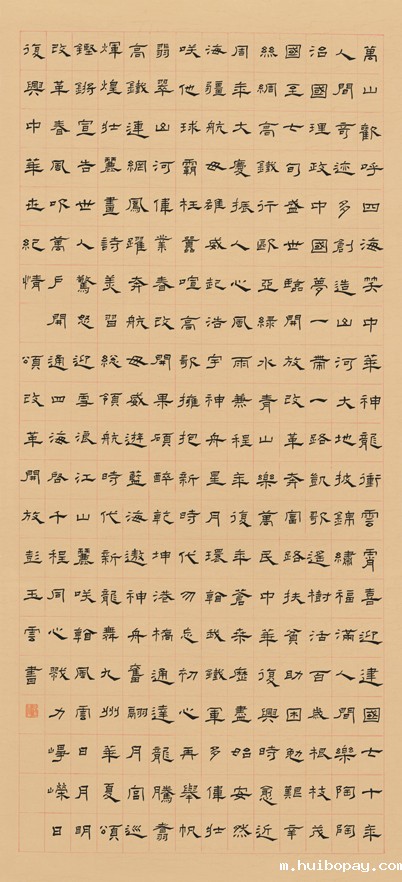 萬山歡呼四海笑中華神龍衝雲霄喜迎建國七十年
人間奇迹多創造山河大地披錦繡福滿人間樂陶陶
治國理政中國夢一帶一路凱歌遙樹活百歲根枝茂
國至七旬盛世臨開放改革奔富路扶貧助困勉艱辛
絲綢高鐵行歐亞綠水青山樂萬民中華復興時愈近
周年大慶振人心風雨兼程年復年蒼桑歷盡始安然
海疆航母雄威起浩宇神舟星月環翰我鐵軍多偉壯
咲他球霸枉囂喧高歌擁抱新時代勿忘初心再舉帆
翡翠山河偉業春改開果碩醉乾坤港橋通達龍騰翥
高鐵連網鳳躍奔航母威遊藍海遨神舟奮翮月宮巡
輝煌壯麗畫詩美習總領航時代新龍舞九州華夏頌
鏗鏘宣告世人驚怒迎雪浪江山麗咲翰風雲日月明
改革春風吹萬戶開通四海啓千程同心戮力崢嶸日
復興中華世紀情 頌改革開放彭玉雲書
m.huibopay.com